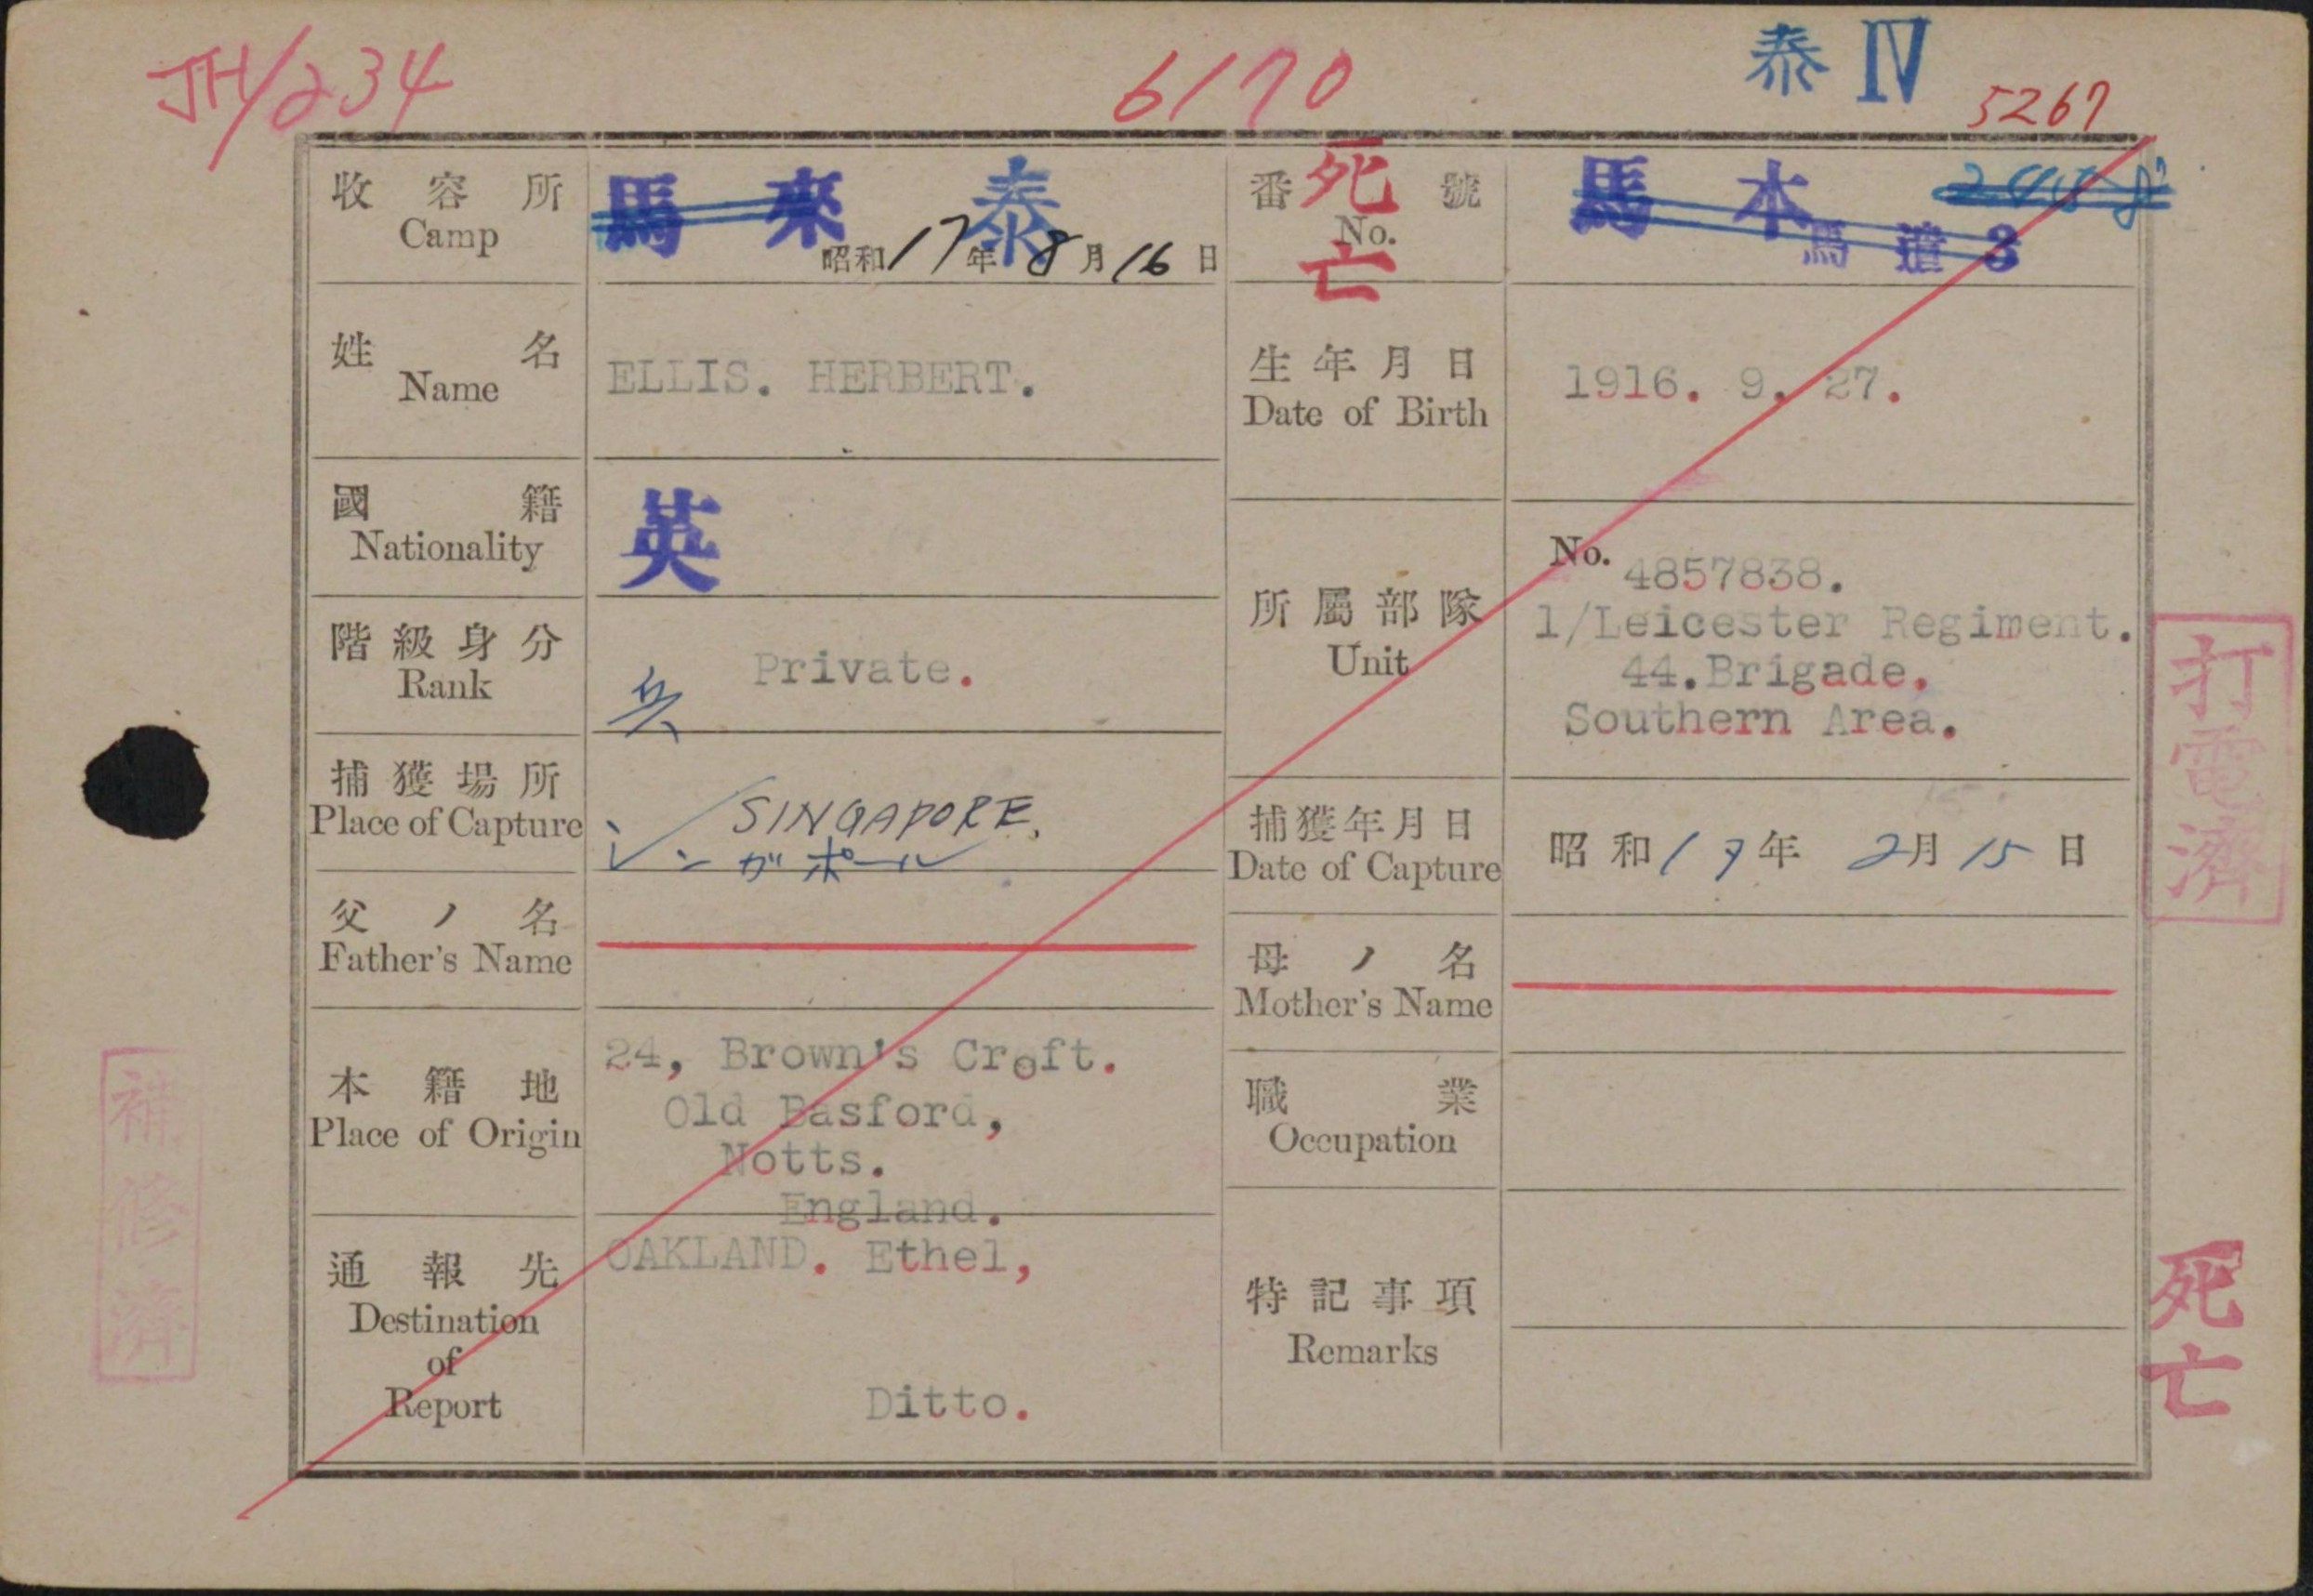 JH/234
6170
泰 IV
5267
收容所
Camp
馬來 泰
昭和17年8月16日
番號
No.
死亡
馬本
馬遣3
姓名
Name
ELLIS. HERBERT.
生年月日
Date of Birth
1916. 9. 27.
國籍
Nationality
英
階級身分
Rank
兵 Private.
所屬部隊
Unit
No. 4857838.
1/Leicester Regiment.
44.Brigade.
Southern Area.
捕獲場所
Place of Capture
SINGAPORE.
シンガポール
捕獲年月日
Date of Capture
昭和17年 2月15日
父ノ名
Father's Name
母ノ名
Mother's Name
本籍地
Place of Origin
24, Brown's Croft.
Old Basford,
Notts.
England.
職業
Occupation
通報先
Destination
of
Report
OAKLAND. Ethel,
Ditto.
特記事項
Remarks
打電濟
補修濟
死亡